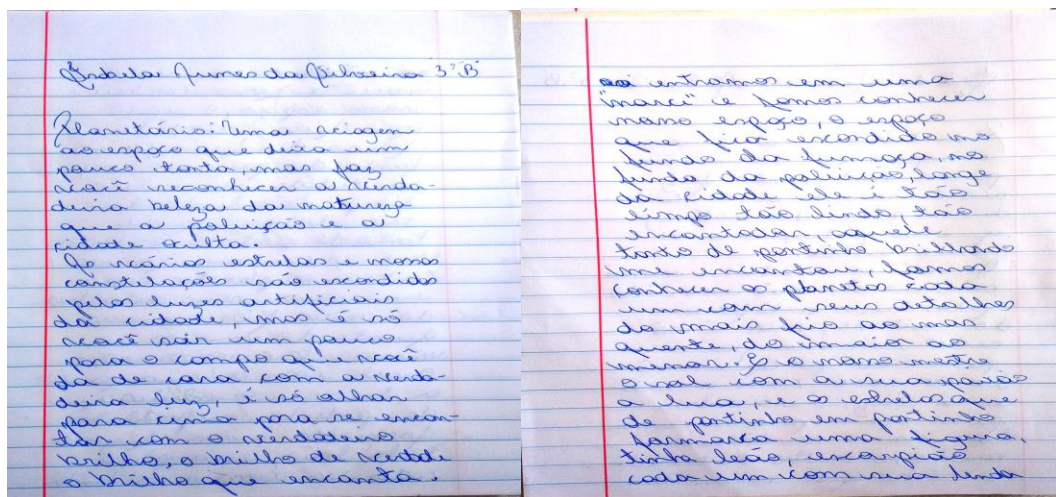 Isabela Nunes da Silveira 3º B
Planetário: Uma viagem
ao espaço que deixa um
pouco tonto, mas faz
você reconhecer a verda-
deira beleza da natureza
que a poluição e a
cidade oculta.
As várias estrelas e nossas
constelações são escondidas
pelas luzes artificiais
da cidade, mas é só
você sair um pouco
para o campo que você
da de cara com a verda-
deira luz, é só olhar
para cima para se encan-
tar com o verdadeiro
brilho, o brilho de verdade
o brilho que encanta.
ai entramos em uma
"nave" e fomos conhecer
nosso espaço, o espaço
que fica escondido no
fundo da fumaça, no
fundo da poluição, longe
da cidade ele é tão
limpo tão lindo, tão
encantador, aquele
tanto de pontinho brilhando
me encantou, fomos
conhecer os planetas cada
um com seus detalhes
do mais frio ao mas
quente, do maior ao
menor. E o nosso mestre
o sol com a sua paixão
a lua, e as estrelas que
de pontinho em pontinho
formava uma figura,
tinha leão, escorpião
cada um com sua lenda